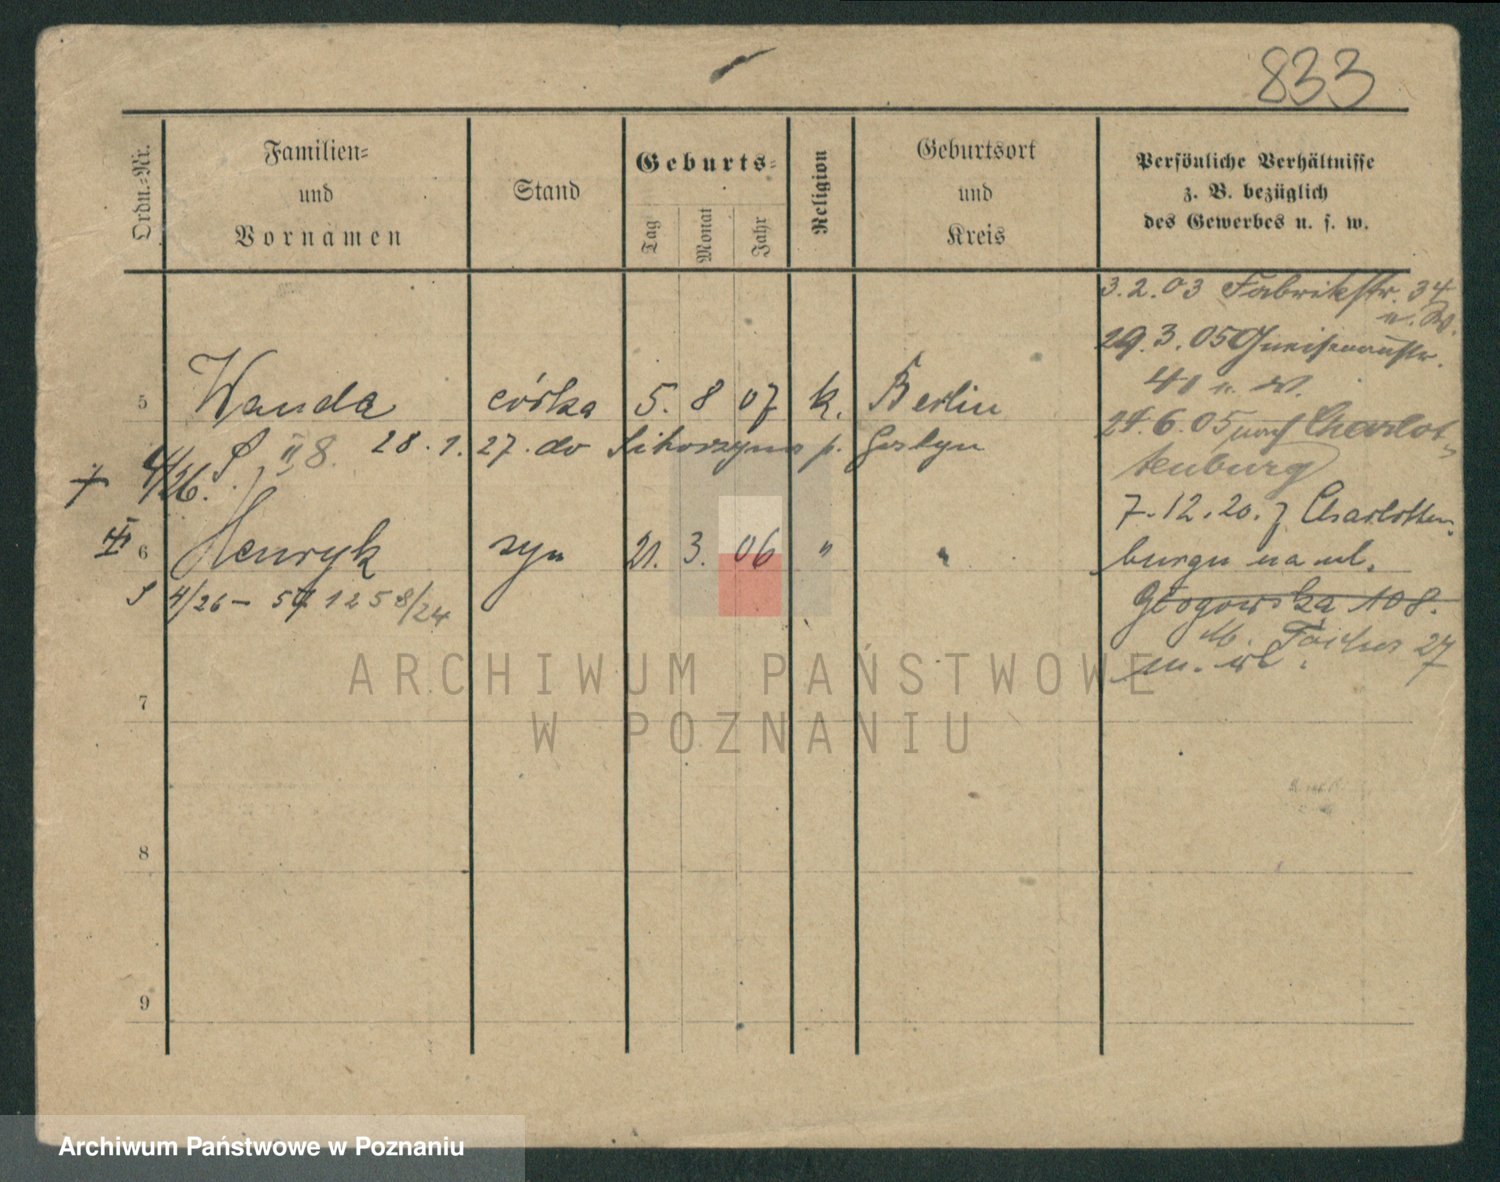 833
Ordn.-Nr.
Familien-
und
Vornamen
Stand
Geburts-
Tag
Monat
Jahr
Religion
Geburtsort
und
Kreis
Persönliche Verhältnisse
z. B. bezüglich
des Gewerbes u. s. w.
3.2.03 Fabrikstr. 34
u. W.
29.3.05 Gneisenaustr.
41 u. W.
24.6.05 nach Charlot-
tenburg
7.12.20. z Charlotten
burgu na ul.
Głogowska 108.
27
5 Wanda córka 5. 8 07 k. Berlin
II 8. 28.1.27. do p. Gostyn
+ 4/26.
6 Henryk syn 21. 3. 06 " "
4/26 – 58/24
7
8
9
ARCHIWUM PAŃSTWOWE
W POZNANIU
Archiwum Państwowe w Poznaniu